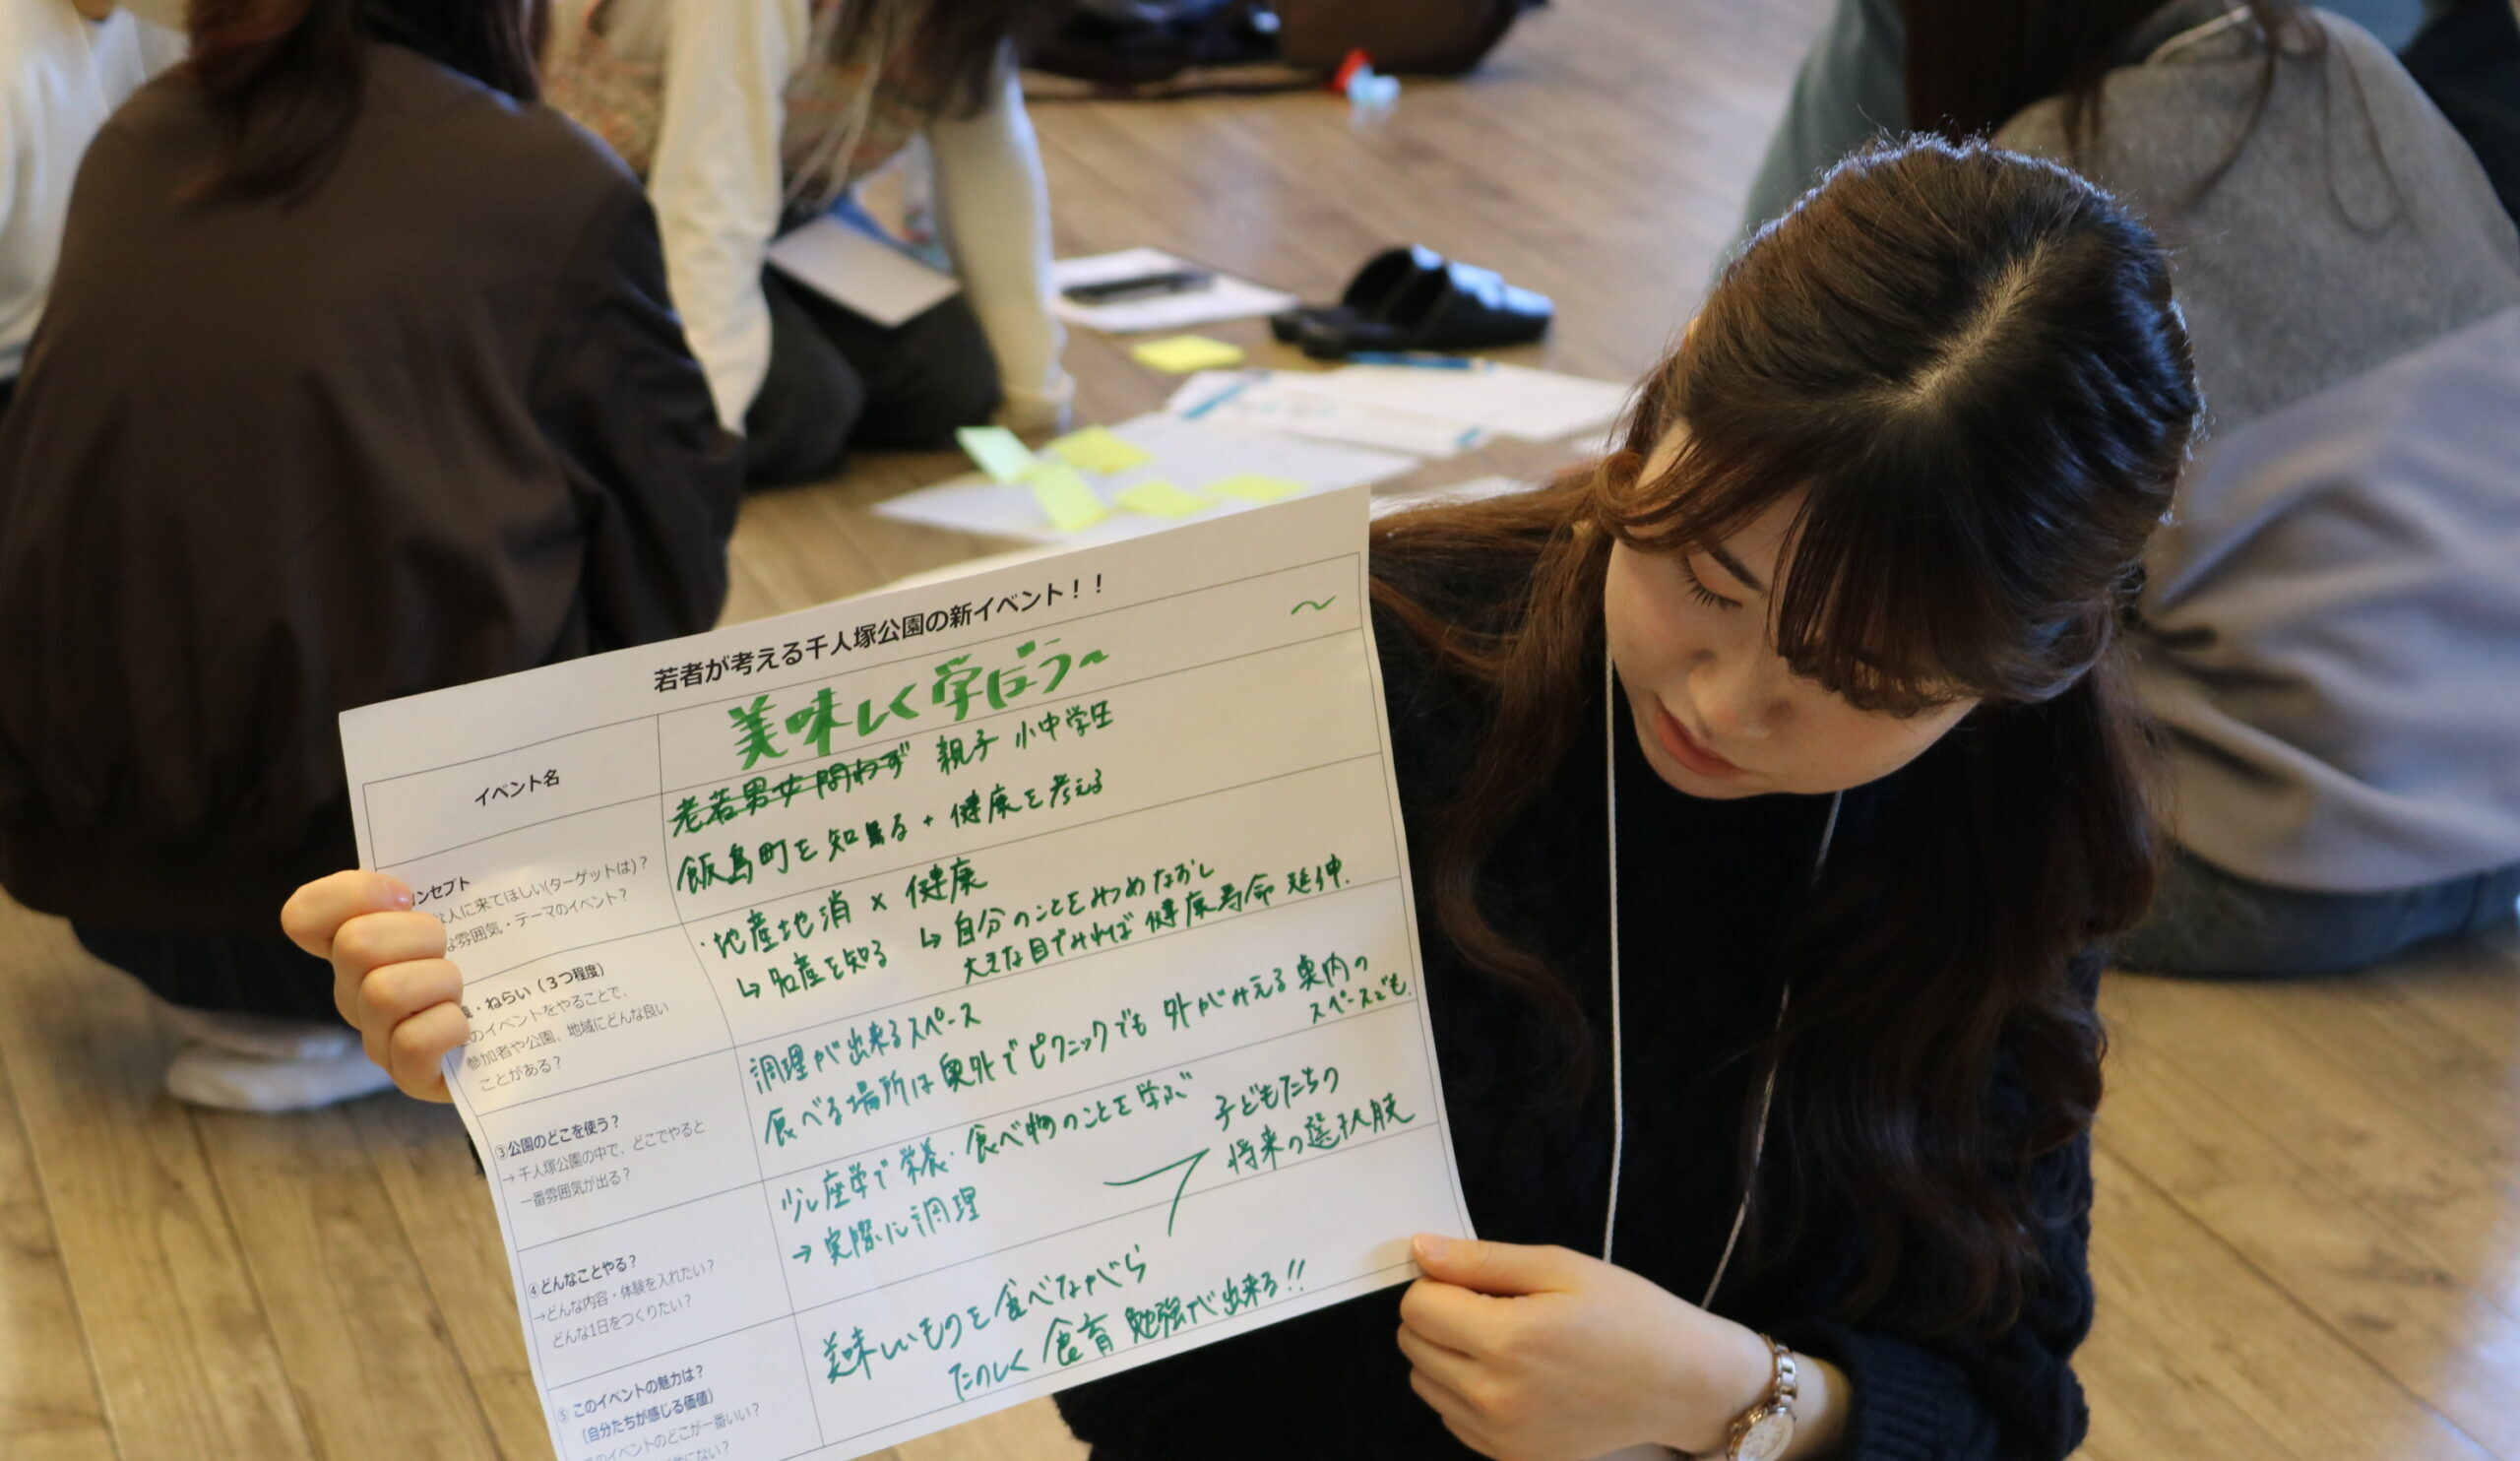 若者が考える千人塚公園の新イベント！！
イベント名
美味しく学ぼう〜
〜
ンセプト
な人に来てほしい(ターゲットは)？
な雰囲気・テーマのイベント？
老若男女問わず 親子 小中学生
飯島町を知る + 健康を考える
・ねらい（３つ程度）
のイベントをやることで、
参加者や公園、地域にどんな良い
ことがある？
・地産地消 × 健康
↳ 名産を知る ↳ 自分のことをみつめなおし
大きな目でみれば 健康寿命 延伸.
③公園のどこを使う？
→ 千人塚公園の中で、どこでやると
一番雰囲気が出る？
調理が出来るスペース
食べる場所は 屋外でピクニックでも 外がみえる 室内の
スペースでも.
④どんなことやる？
→どんな内容・体験を入れたい？
どんな1日をつくりたい？
少し座学で栄養・食べ物のことを学ぶ
→ 実際に調理
子どもたちの
将来の選択肢
⑤ このイベントの魅力は？
(自分たちが感じる価値)
このイベントのどこが一番いい？
にない？
美味しいものを食べながら
たのしく 食育 勉強が出来る!!